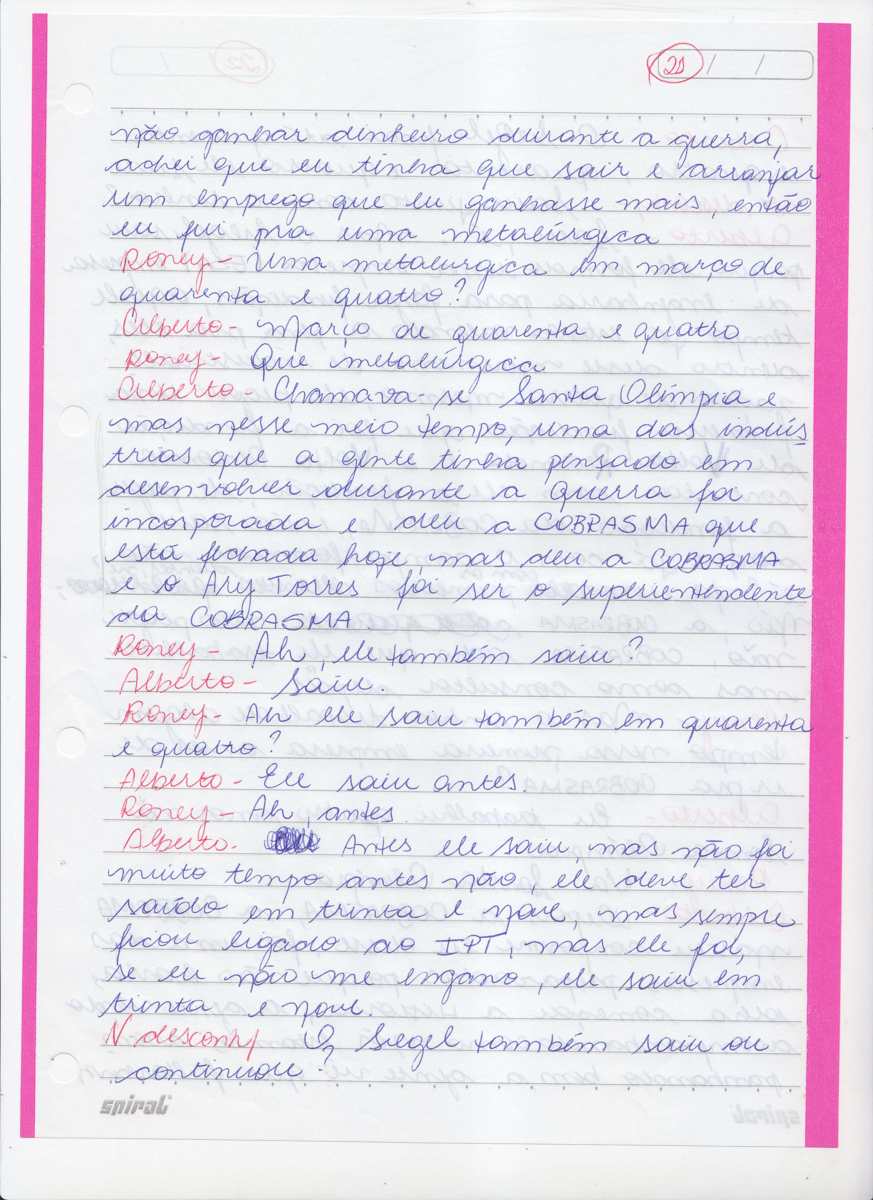 21 / /
não ganhar dinheiro durante a guerra,
achei que eu tinha que sair e arranjar
um emprego que eu ganhasse mais, então
eu fui pra uma metalúrgica
Roney - Uma metalurgica em março de
quarenta e quatro?
Alberto - Março de quarenta e quatro
Roney - Que metalúrgica
Alberto - Chamava-se Santa Olímpia e
mas nesse meio tempo, uma das indús
trias que a gente tinha pensado em
desenvolver durante a Guerra foi
incorporada e deu a COBRASMA que
está fechada hoje, mas deu a COBRASMA
e o Ary Torres foi ser o superientendente
da COBRASMA
Roney - Ah, ele também saiu?
Alberto - Saiu.
Roney - Ah ele saiu também em quarenta
e quatro?
Alberto - Ele saiu antes.
Roney - Ah, antes.
Alberto - Antes ele saiu, mas não foi
muito tempo antes não, ele deve ter
saído em trinta e nove, mas sempre
ficou ligado ao IPT, mas ele foi,
se eu não me engano, ele saiu em
trinta e nove.
N. desconh/ O Siegel também saiu ou
continuou?
spiral